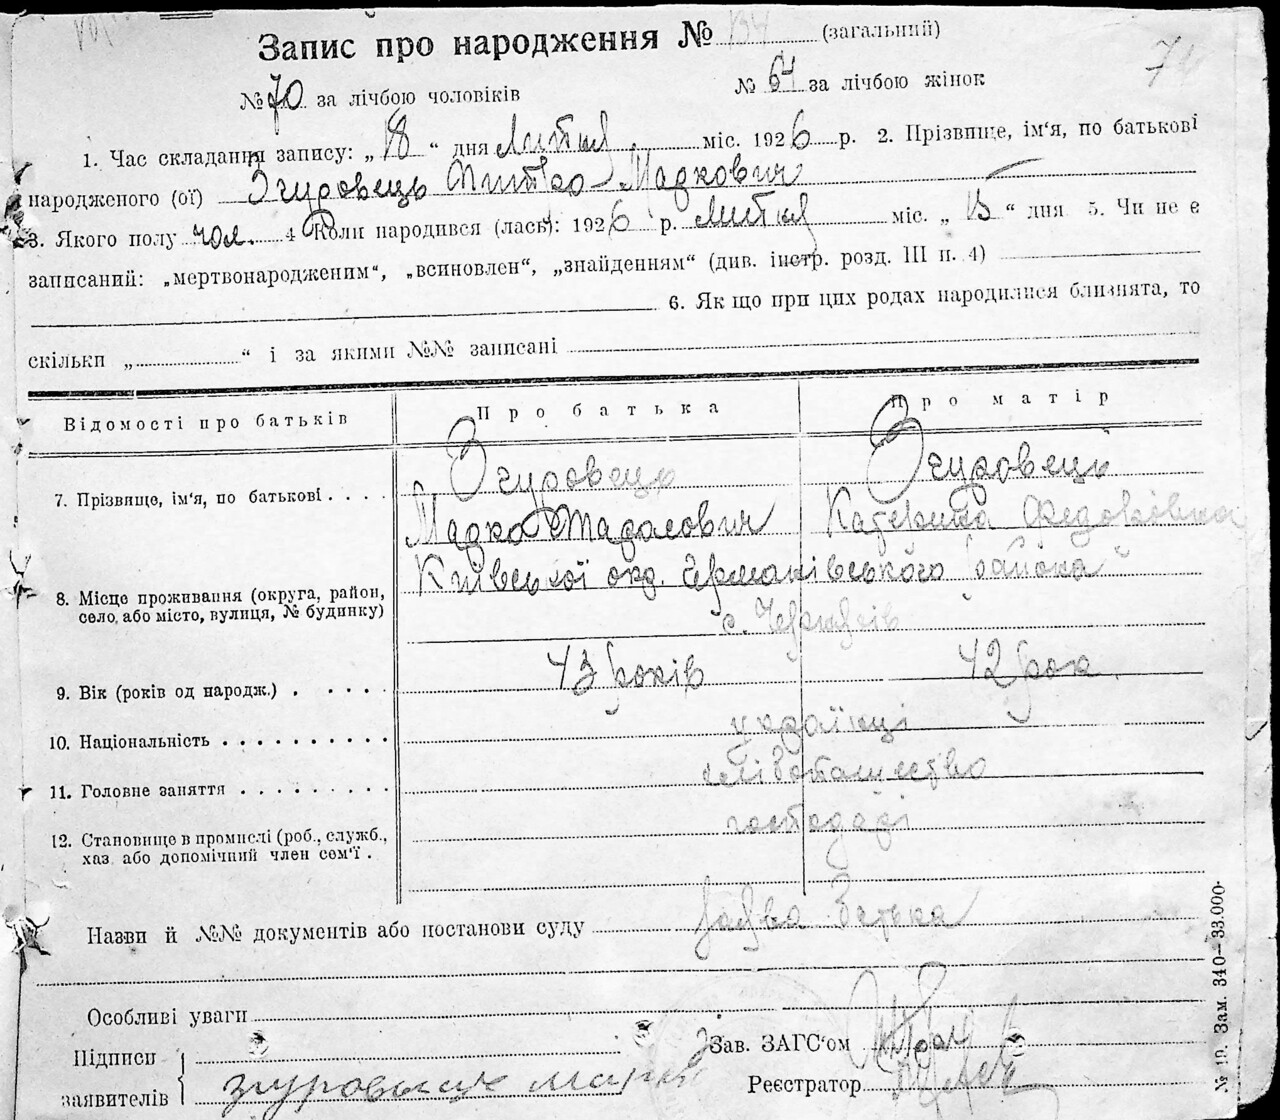 Запис про народження № 134 (загальний)
№ 70 за лічбою чоловіків № 64 за лічбою жінок
1. Час складання запису: „ 18 “ дня Лютня міс. 1926 р. 2. Прізвище, ім'я, по батькові
народженого (ої) Згуровець Митро Маркович
3. Якого полу чол. 4 Коли народився (лась): 1926 р. лютня міс. „ 15 “ дня 5. Чи не є
записаний: „мертвонародженим“, „всиновлен“, „знайденням“ (див. інстр. розд. III п. 4)
6. Як що при цих родах народилися близнята, то
скільки „ “ і за якими №№ записані
Відомості про батьків Про батька Про матір
7. Прізвище, ім'я, по батькові Згуровець Згуровець
Марко Тарасович Катерина Федоровна
8. Місце проживання (округа, район, село, або місто, вулиця, № будинку) Київської окр. Германівського району
9. Вік (років од народж.) 43 років 42 рок.
10. Національність українці
11. Головне заняття хліборобство
12. Становище в промислі (роб., служб., господарі
хаз. або допомічний член сем'ї.
Назви й №№ документів або постанови суду заява батька
Особливі уваги
Підписи Зав. ЗАГС'ом
заявителів Реєстратор
№ 19. Зам. 340—33.000.